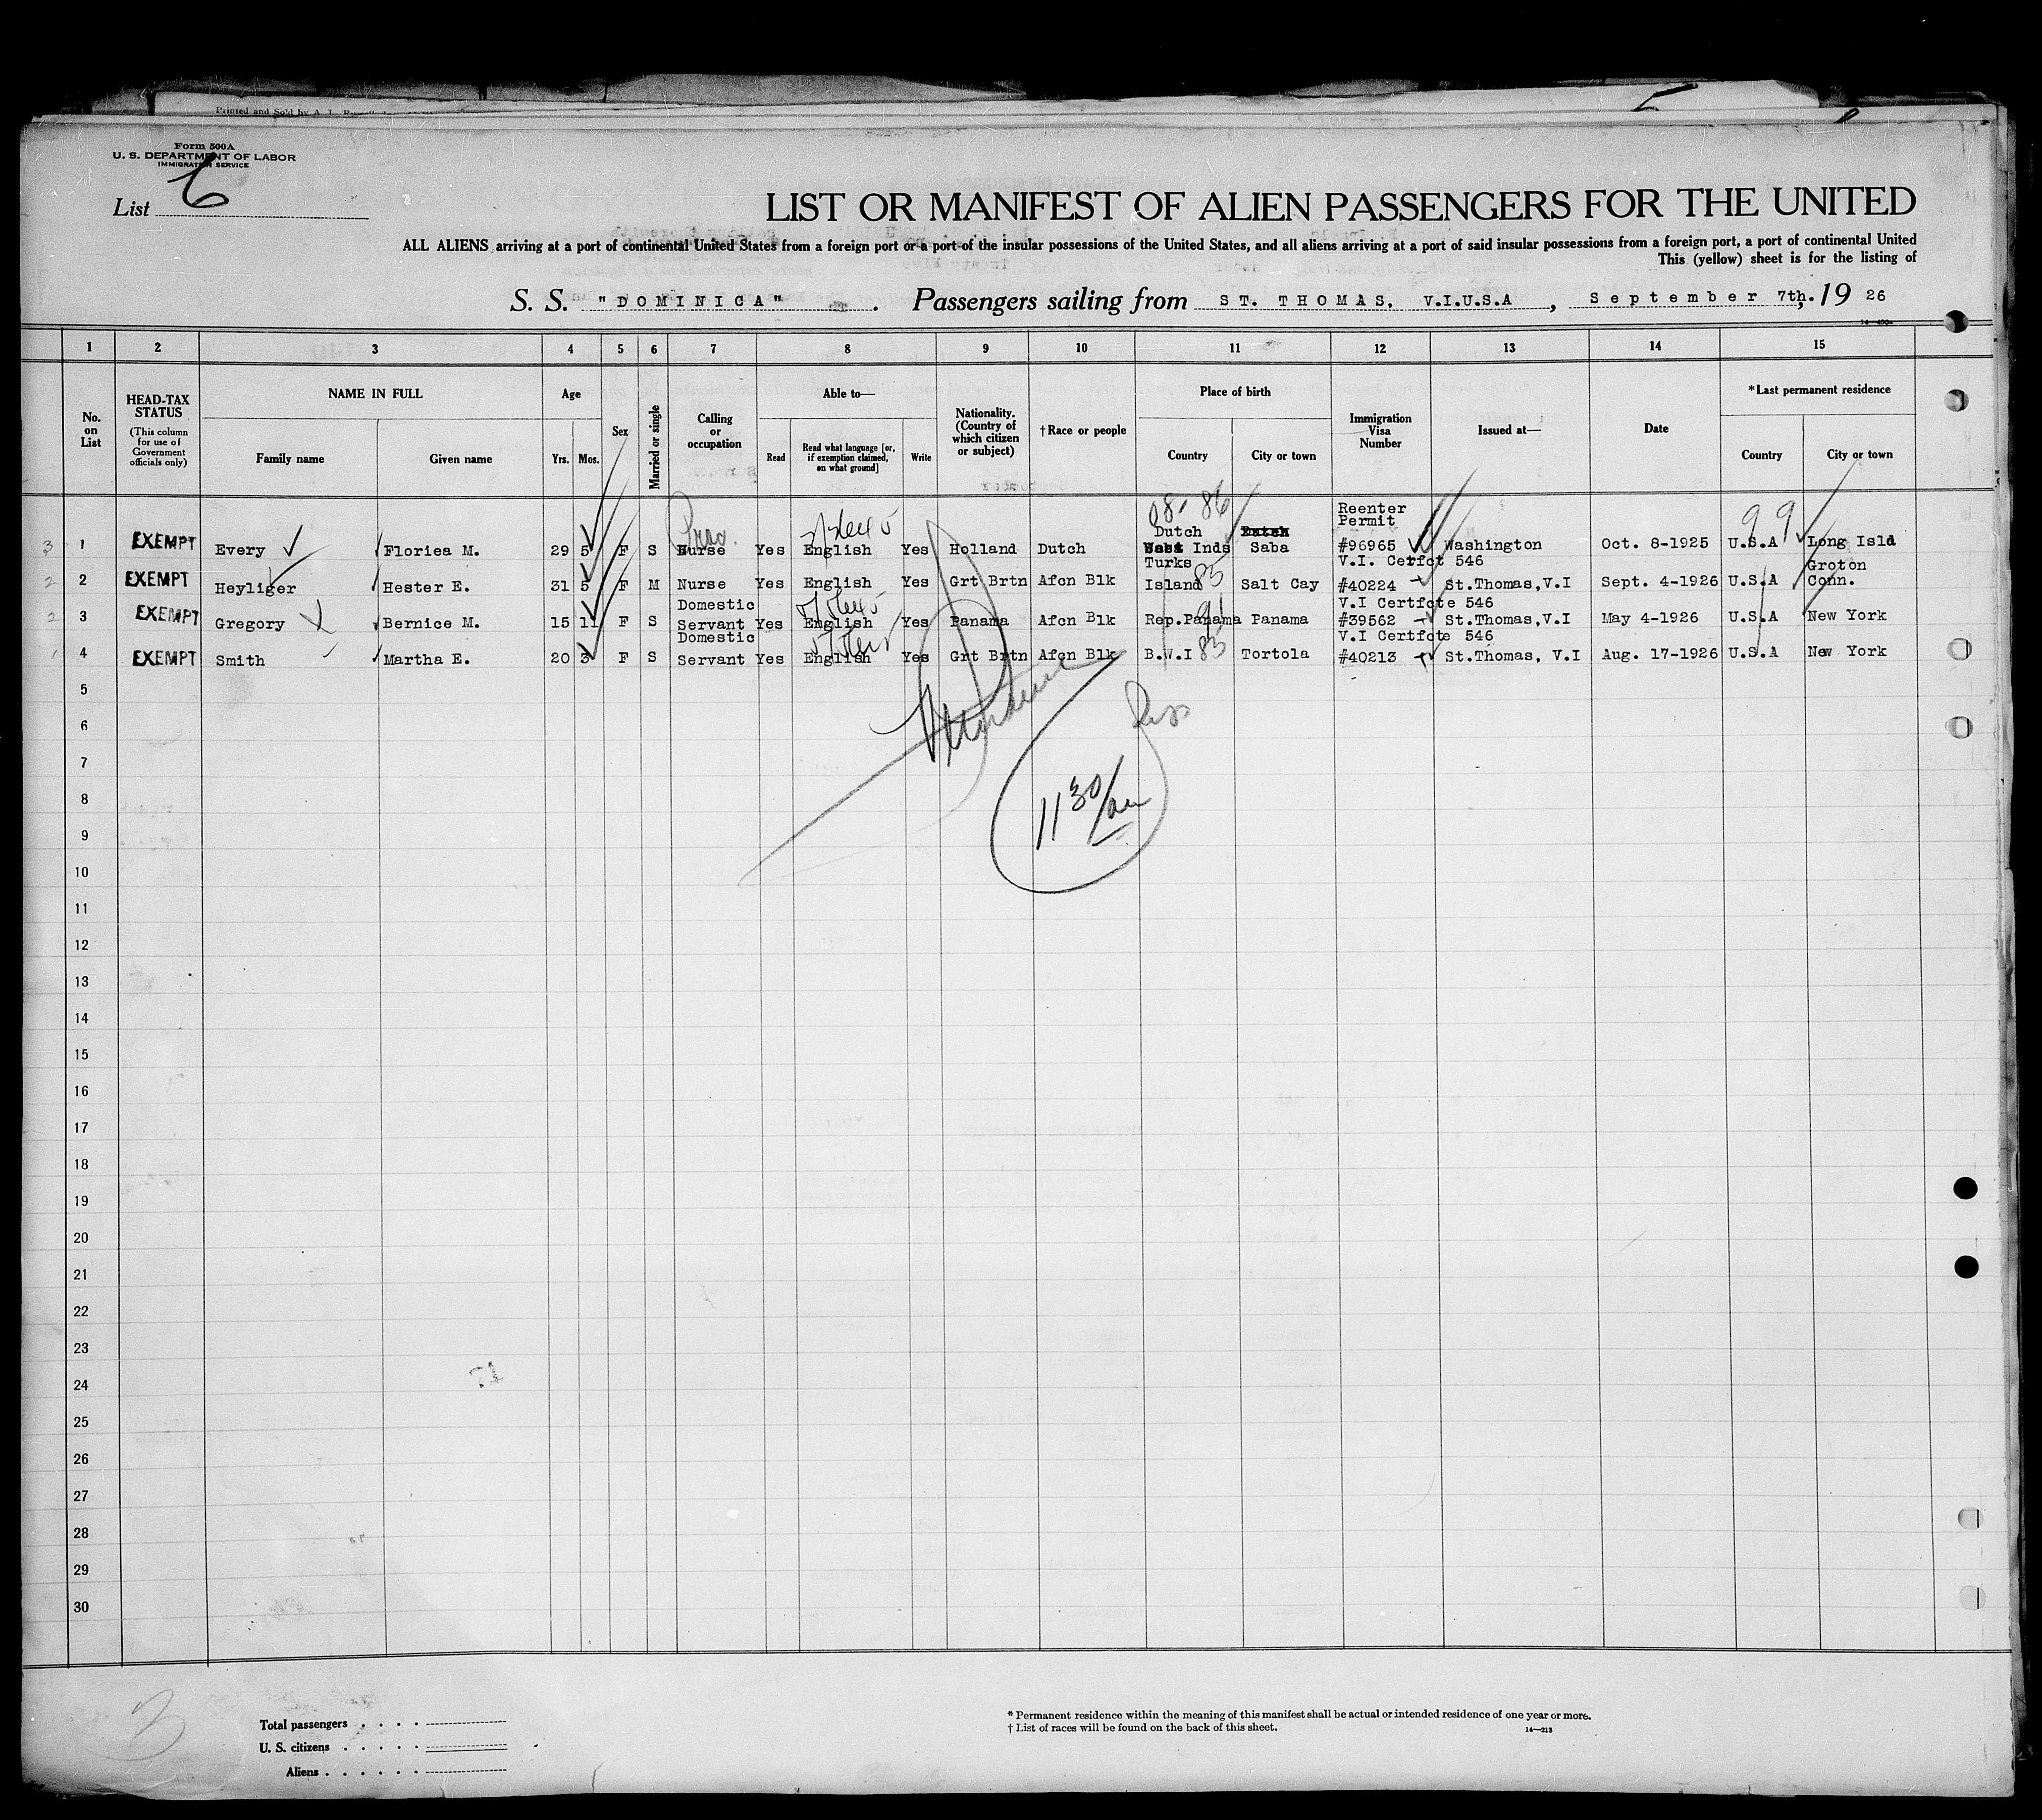 Printed and Sold by A. L.
Form 500A
U. S. DEPARTMENT OF LABOR
IMMIGRATION SERVICE
List 6
LIST OR MANIFEST OF ALIEN PASSENGERS FOR THE UNITED
ALL ALIENS arriving at a port of continental United States from a foreign port or a port of the insular possessions of the United States, and all aliens arriving at a port of said insular possessions from a foreign port, a port of continental United
This (yellow) sheet is for the listing of
S. S. "DOMINICA". Passengers sailing from ST. THOMAS, V.I.U.S.A, September 7th. 19 26
1 2 3 4 5 6 7 8 9 10 11 12 13 14 15
No. on List
HEAD-TAX STATUS
(This column for use of Government officials only)
NAME IN FULL
Family name
Given name
Age
Yrs. Mos.
Sex
Married or single
Calling or occupation
Able to—
Read
Read what language [or, if exemption claimed, on what ground]
Write
Nationality. (Country of which citizen or subject)
†Race or people
Place of birth
Country
City or town
Immigration Visa Number
Issued at—
Date
*Last permanent residence
Country
City or town
08. 86
99
Reenter
Permit
Dutch
3 1 EXEMPT Every Floriea M. 29 5 F S Nurse Yes English Yes Holland Dutch West Inds Saba #96965 Washington Oct. 8-1925 U.S.A Long Isld
Turks V.I. Cerfct 546 Groton
2 2 EXEMPT Heyliger Hester E. 31 5 F M Nurse Yes English Yes Grt Brtn Afcn Blk Island 85 Salt Cay #40224 St.Thomas,V.I Sept. 4-1926 U.S.A Conn.
Domestic V.I Certfcte 546
2 3 EXEMPT Gregory Bernice M. 15 11 F S Servant Yes English Yes Panama Afcn Blk Rep.Panama Panama #39562 St.Thomas,V.I May 4-1926 U.S.A New York
Domestic V.I Certfcte 546
1 4 EXEMPT Smith Martha E. 20 3 F S Servant Yes English Yes Grt Brtn Afcn Blk B.W.I 85 Tortola #40213 St.Thomas, V.I Aug. 17-1926 U.S.A New York
5
6
7
8
11 30/am
9
10
11
12
13
14
15
16
17
18
19
20
21
22
23
24
25
26
27
28
29
30
3
Total passengers
U. S. citizens
Aliens
* Permanent residence within the meaning of this manifest shall be actual or intended residence of one year or more.
† List of races will be found on the back of this sheet.
14—213